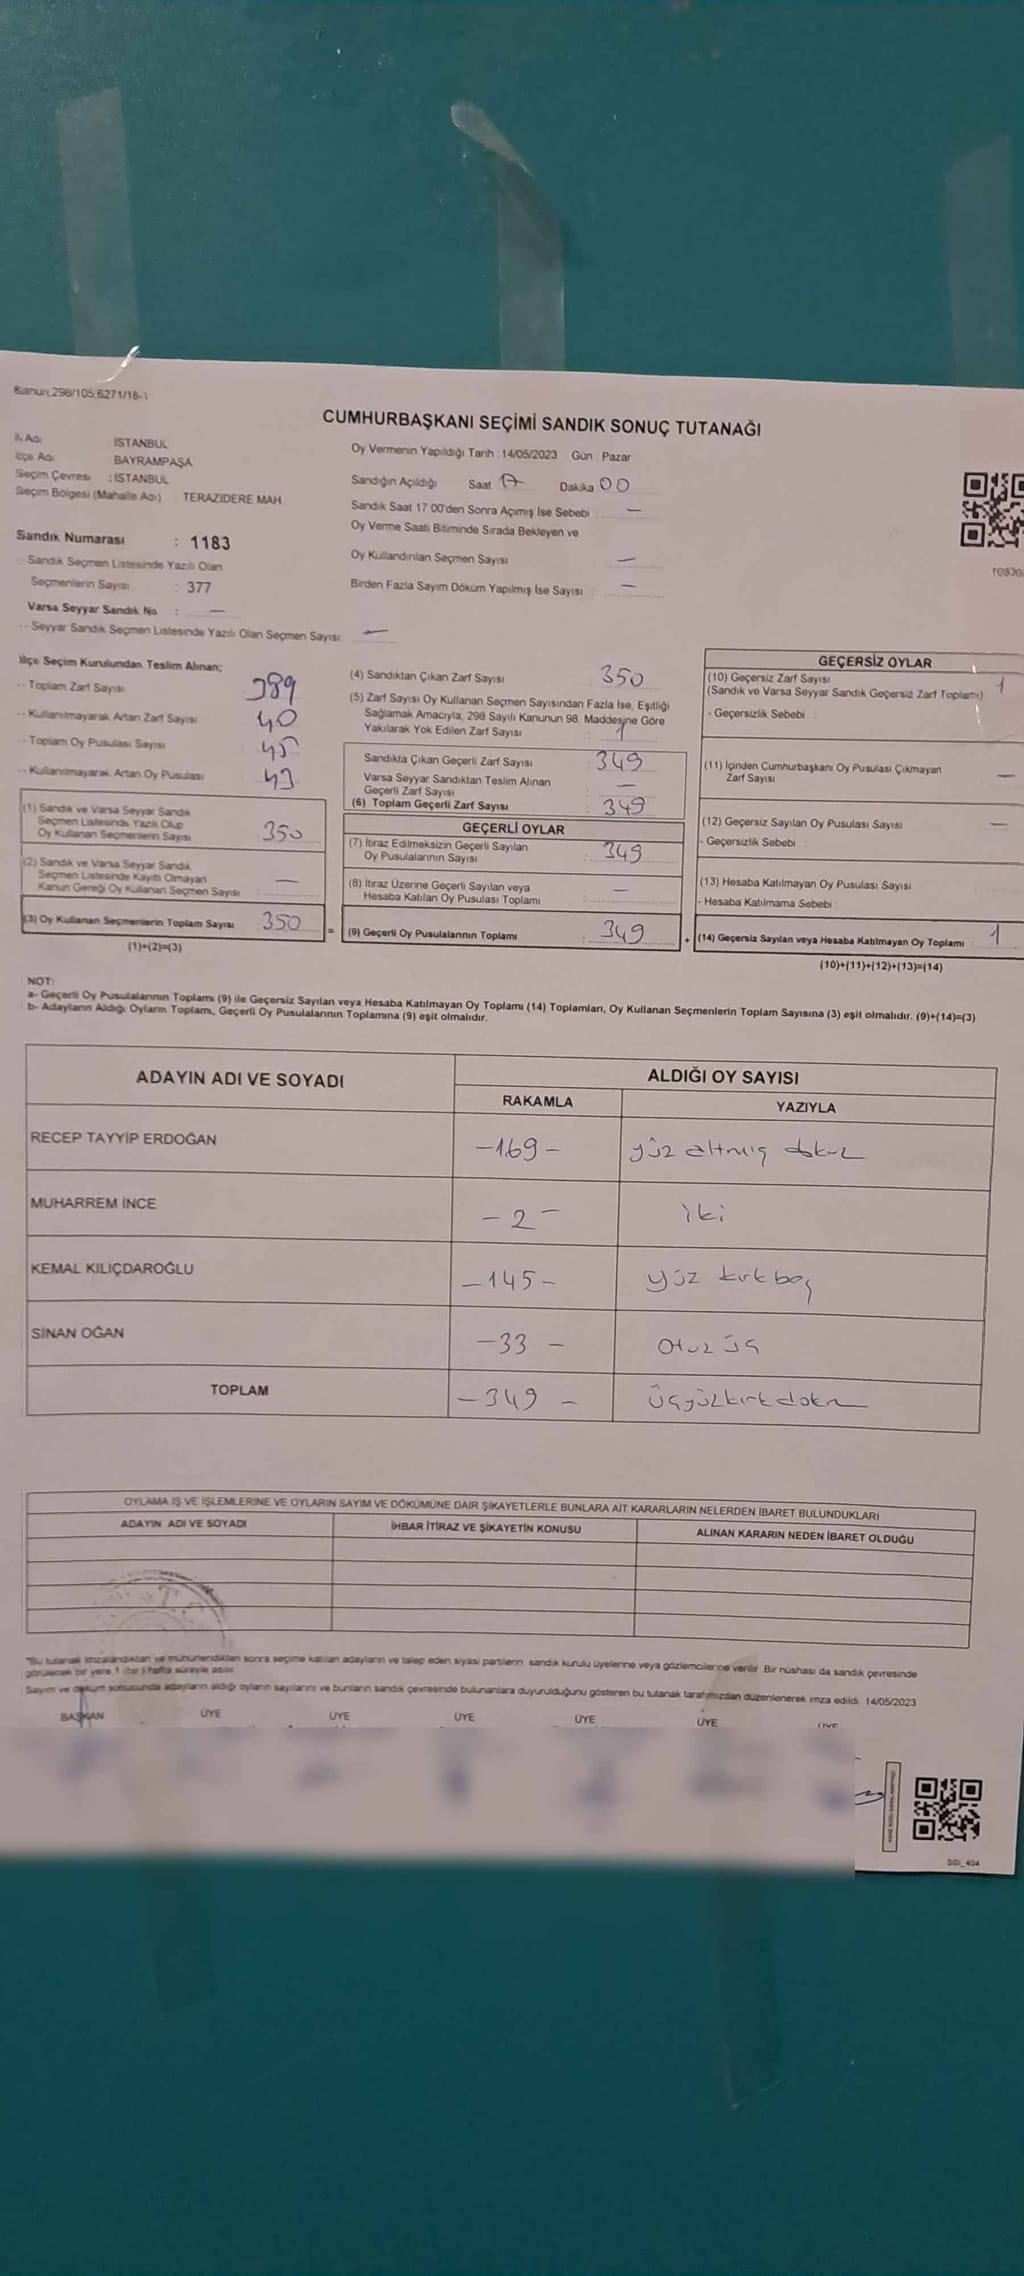 CUMHURBAŞKANI SEÇİMİ SANDIK SONUÇ TUTANAĞI
İl Adı İSTANBUL
İlçe Adı BAYRAMPAŞA
Seçim Çevresi : İSTANBUL
Seçim Bölgesi (Mahalle Adı) : TERAZİDERE MAH.
Sandık Numarası : 1183
Sandık Seçmen Listesinde Yazılı Olan
Seçmenlerin Sayısı : 377
Varsa Seyyar Sandık No : —
Seyyar Sandık Seçmen Listesinde Yazılı Olan Seçmen Sayısı —
Oy Vermenin Yapıldığı Tarih : 14/05/2023 Gün : Pazar
Sandığın Açıldığı Saat 17 Dakika 00
Sandık Saat 17:00'den Sonra Açımış İse Sebebi : —
Oy Verme Saati Bitiminde Sırada Bekleyen ve
Oy Kullandırılan Seçmen Sayısı —
Birden Fazla Sayım Döküm Yapılmış İse Sayısı : —
İlçe Seçim Kurulundan Teslim Alınan;
Toplam Zarf Sayısı 389
Kullanılmayarak Artan Zarf Sayısı 40
Toplam Oy Pusulası Sayısı 45
Kullanılmayarak Artan Oy Pusulası 43
(1) Sandık ve Varsa Seyyar Sandık
Seçmen Listesinde Yazılı Olup
Oy Kullanan Seçmenlerin Sayısı 350
(2) Sandık ve Varsa Seyyar Sandık
Seçmen Listesinde Kayıtlı Olmayan
Kanun Gereği Oy Kullanan Seçmen Sayısı —
(3) Oy Kullanan Seçmenlerin Toplam Sayısı 350
(1)+(2)=(3)
(4) Sandıktan Çıkan Zarf Sayısı : 350
(5) Zarf Sayısı Oy Kullanan Seçmen Sayısından Fazla İse, Eşitliği
Sağlamak Amacıyla, 298 Sayılı Kanunun 98. Maddesine Göre
Yakılarak Yok Edilen Zarf Sayısı : 1
Sandıkta Çıkan Geçerli Zarf Sayısı : 349
Varsa Seyyar Sandıktan Teslim Alınan
Geçerli Zarf Sayısı : —
(6) Toplam Geçerli Zarf Sayısı : 349
GEÇERLİ OYLAR
(7) İtiraz Edilmeksizin Geçerli Sayılan
Oy Pusulalarının Sayısı : 349
(8) İtiraz Üzerine Geçerli Sayılan veya
Hesaba Katılan Oy Pusulası Toplamı : —
= (9) Geçerli Oy Pusulalarının Toplamı : 349
GEÇERSİZ OYLAR
(10) Geçersiz Zarf Sayısı 1
(Sandık ve Varsa Seyyar Sandık Geçersiz Zarf Toplamı)
- Geçersizlik Sebebi :
(11) İçinden Cumhurbaşkanı Oy Pusulası Çıkmayan
Zarf Sayısı —
(12) Geçersiz Sayılan Oy Pusulası Sayısı —
- Geçersizlik Sebebi :
(13) Hesaba Katılmayan Oy Pusulası Sayısı :
- Hesaba Katılmama Sebebi :
+ (14) Geçersiz Sayılan veya Hesaba Katılmayan Oy Toplamı : 1
(10)+(11)+(12)+(13)=(14)
NOT:
a- Geçerli Oy Pusulalarının Toplamı (9) ile Geçersiz Sayılan veya Hesaba Katılmayan Oy Toplamı (14) Toplamları, Oy Kullanan Seçmenlerin Toplam Sayısına (3) eşit olmalıdır. (9)+(14)=(3)
b- Adayların Aldığı Oyların Toplamı, Geçerli Oy Pusulalarının Toplamına (9) eşit olmalıdır.
ADAYIN ADI VE SOYADI ALDIĞI OY SAYISI
RAKAMLA YAZIYLA
RECEP TAYYİP ERDOĞAN -169- yüz altmış dokuz
MUHARREM İNCE -2- iki
KEMAL KILIÇDAROĞLU -145- yüz kırk beş
SİNAN OĞAN -33- otuz üç
TOPLAM -349- üçyüzkırkdokuz
OYLAMA İŞ VE İŞLEMLERİNE VE OYLARIN SAYIM VE DÖKÜMÜNE DAİR ŞİKAYETLERLE BUNLARA AİT KARARLARIN NELERDEN İBARET BULUNDUKLARI
ADAYIN ADI VE SOYADI İHBAR İTİRAZ VE ŞİKAYETİN KONUSU ALINAN KARARIN NEDEN İBARET OLDUĞU
T.C.
"Bu tutanak imzalandıktan ve mühürlendikten sonra seçime katılan adayların ve talep eden siyasi partilerin sandık kurulu üyelerine veya gözlemcilerine verilir. Bir nüshası da sandık çevresinde
görülecek bir yere 1 (bir) hafta süreyle asılır.
Sayım ve döküm sonucunda adayların aldığı oyların sayılarını ve bunların sandık çevresinde bulunanlara duyurulduğunu gösteren bu tutanak tarafımızdan düzenlenerek imza edildi. 14/05/2023
BAŞKAN ÜYE ÜYE ÜYE ÜYE ÜYE ÜYE
SSI_404